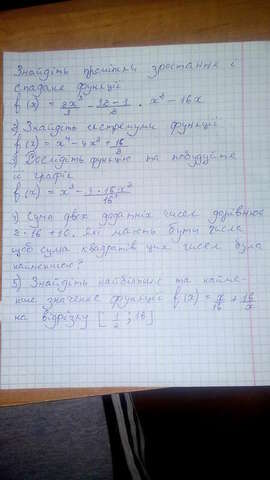 Знайдіть проміжки зростання і
спадане функції
f(x) = 2x³/3 - 12-1/2 · x² - 16x
2) Знайдіть екстремуми функції
f(x) = x⁴ - 4x³ + 16/2
3) Дослідіть функцію та побудуйте
її графік
f(x) = x³ - 3·16x²/16
4) Сума двох додатніх чисел дорівнює
2·16+10. Які мають бути числа
щоб сума квадратів цих чисел була
найменшою?
5) Знайдіть найбільше та найме-
нше значення функції f(x) = x/16 + 16/x
на відрізку [1/2; 16]